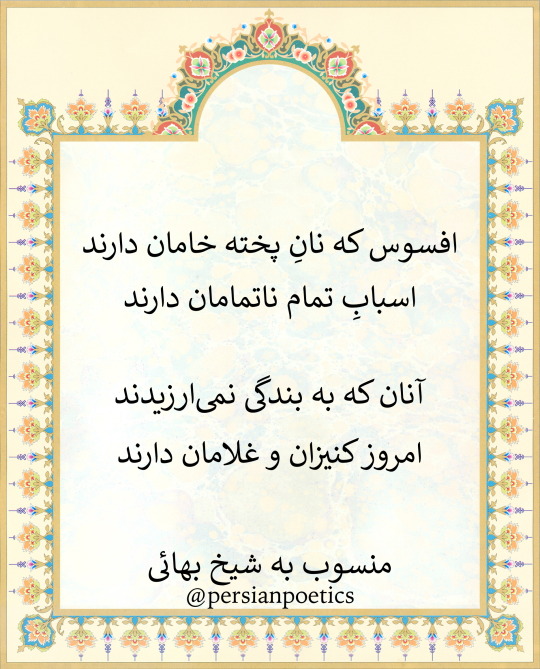 افسوس که نانِ پخته خامان دارند
اسبابِ تمام ناتمامان دارند
آنان که به بندگی نمی‌ارزیدند
امروز کنیزان و غلامان دارند
منسوب به شیخ بهائی
@persianpoetics